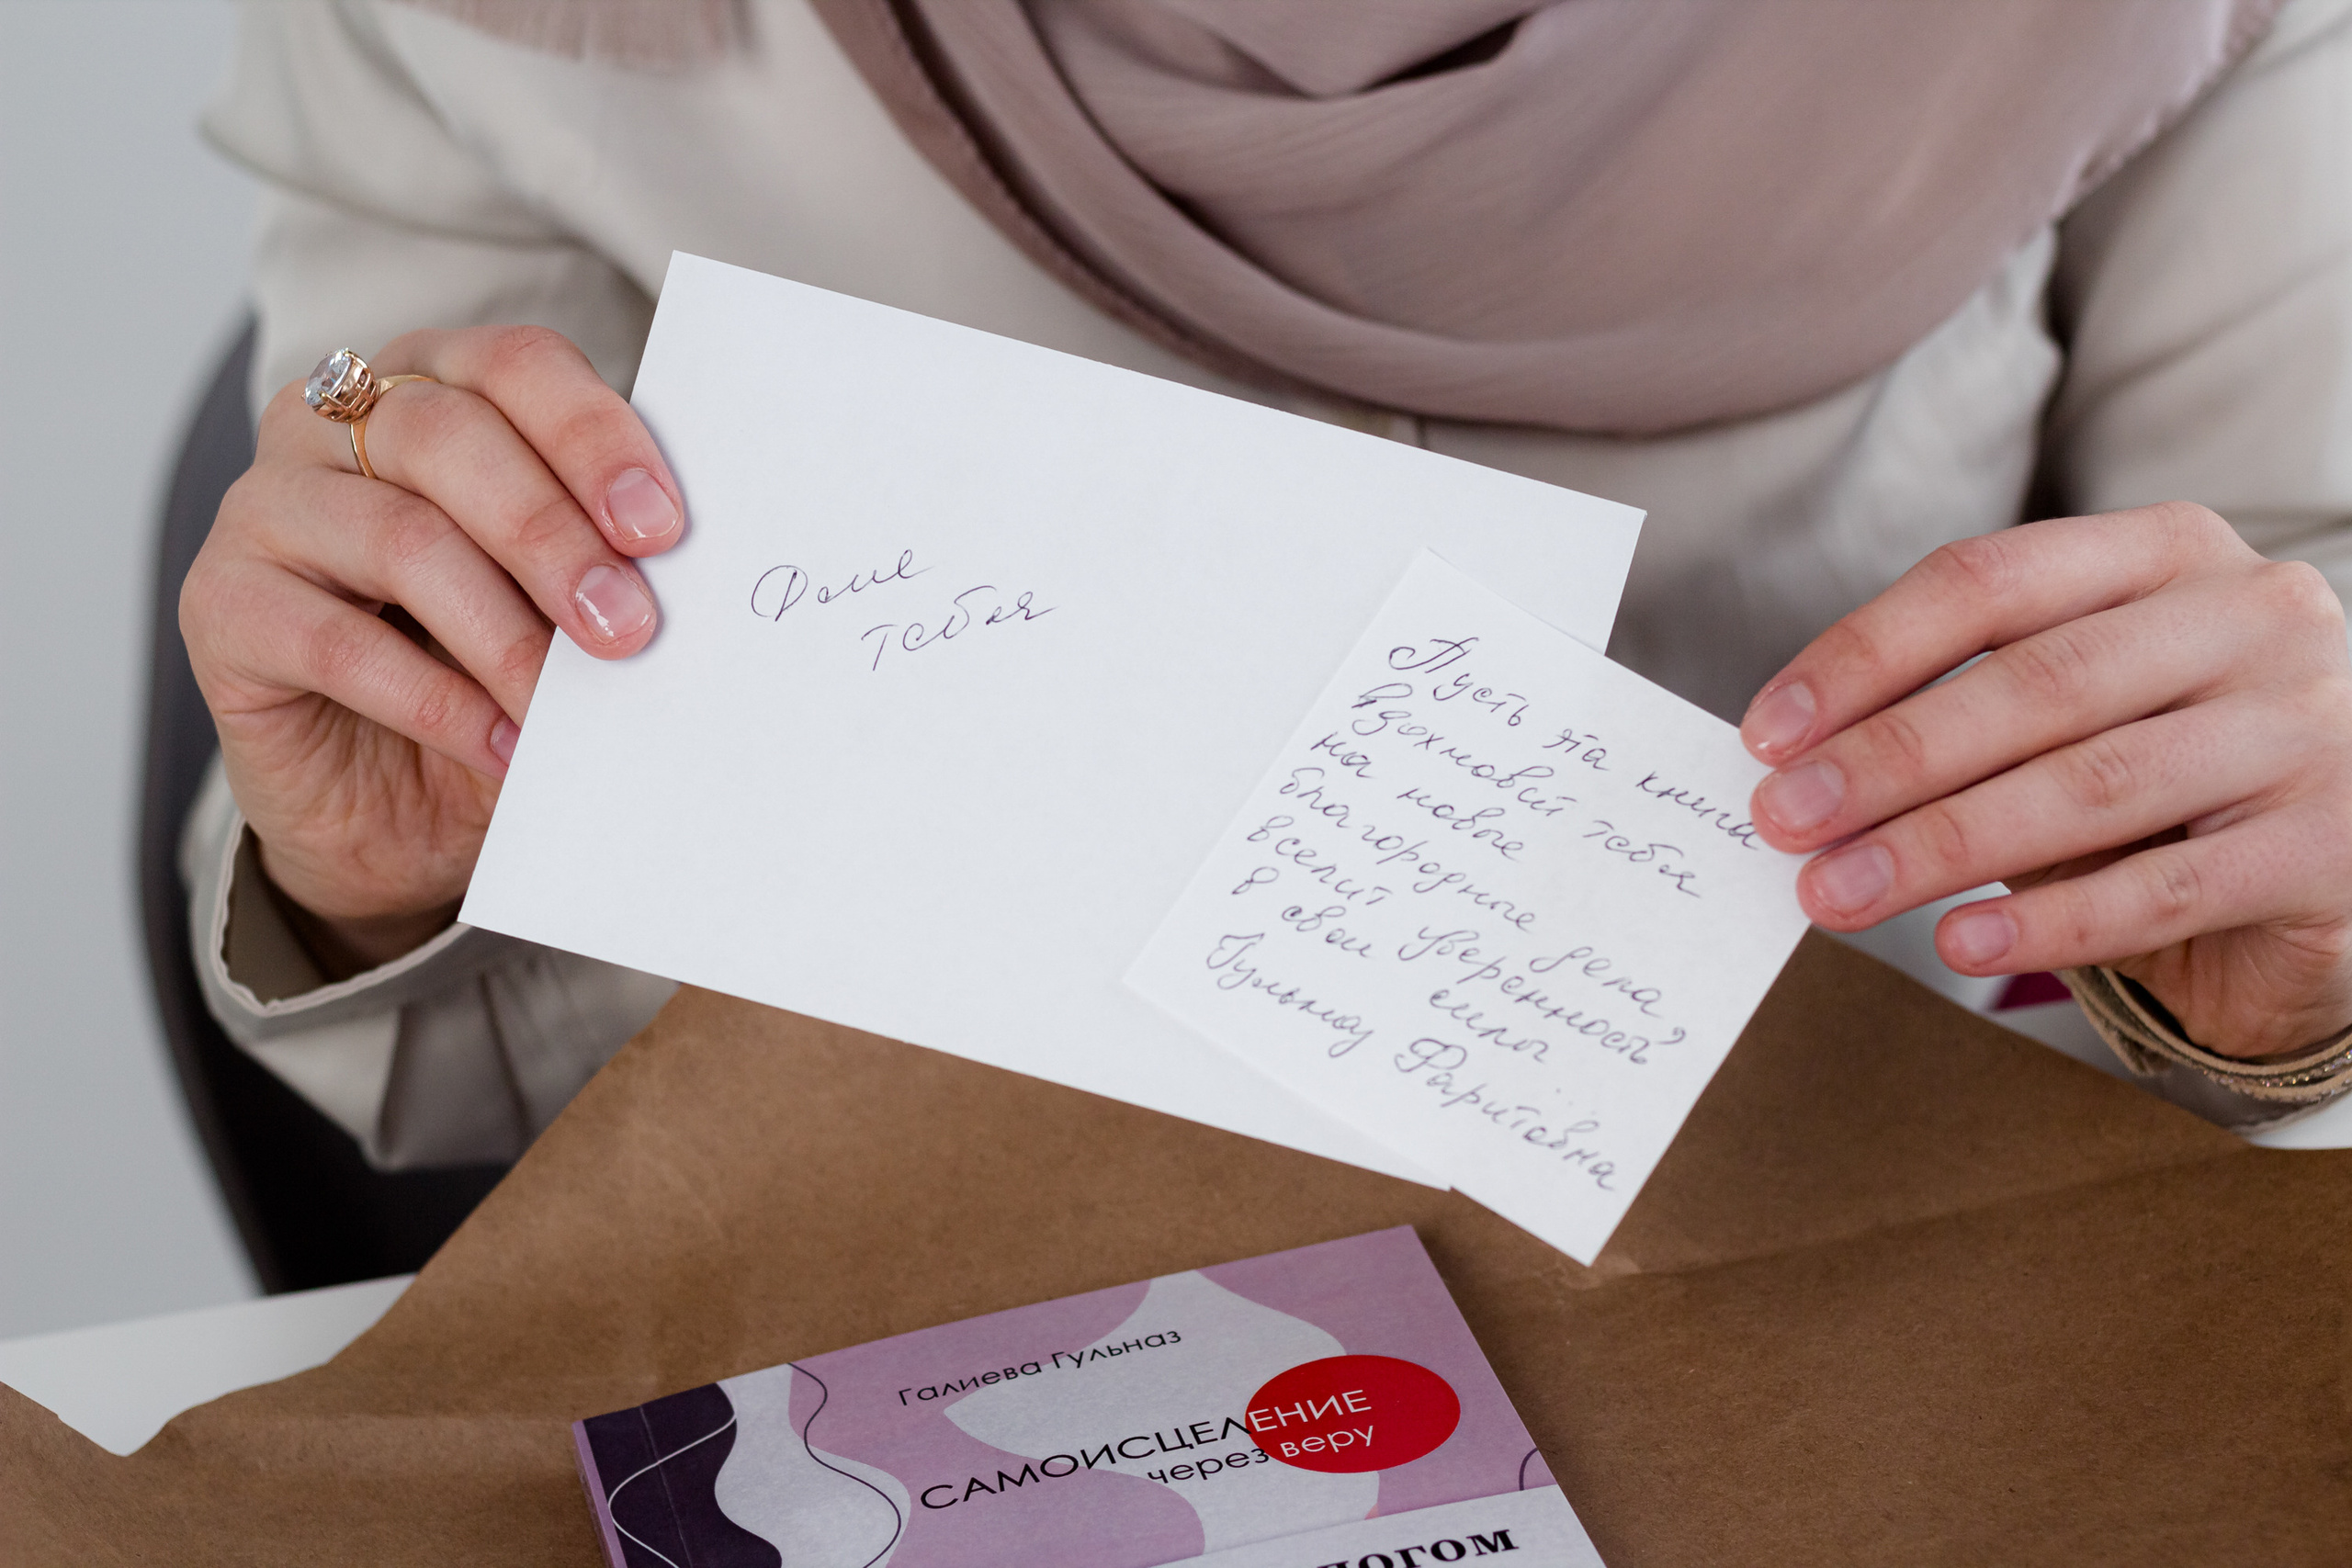 Для
тебя
Пусть эта книга
вдохновит тебя
на новые
благородные дела,
вселит уверенность
в свои силы
Гульназ Фаритовна
Галиева Гульназ
САМОИСЦЕЛЕНИЕ
через веру
логом